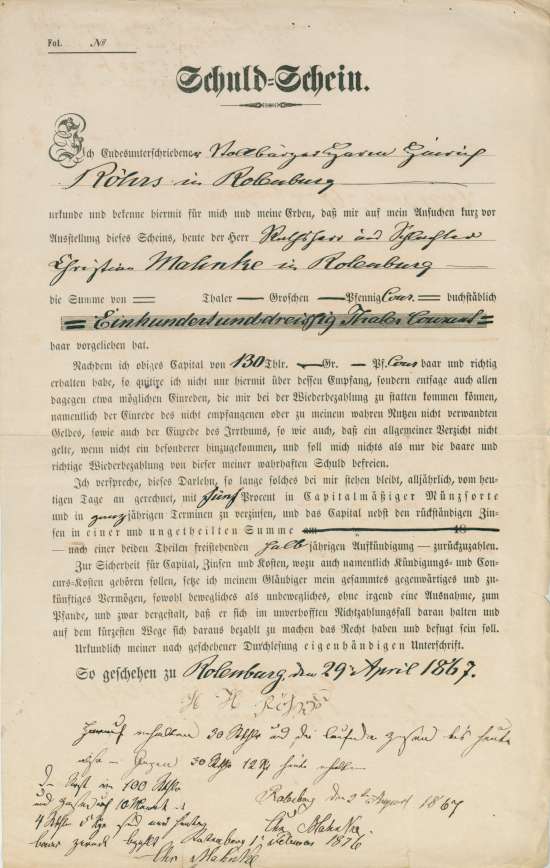 Fol. No
Schuld-Schein.
Ich Endesunterschriebener Vollbürger Harm Hinrich
Röhrs in Rotenburg
urkunde und bekenne hiermit für mich und meine Erben, daß mir auf mein Ansuchen kurz vor
Ausstellung dieses Scheins, heute der Herr Rathsherr und Schlachter
Christian Mahnke in Rotenburg
die Summe von Thaler Groschen Pfennig Cour. buchstäblich
Einhundertunddreißig Thaler Courant
baar vorgeliehen hat.
Nachdem ich obiges Capital von 130 Thlr. Gr. Pf. Cour baar und richtig
erhalten habe, so quitire ich nicht nur hiermit über dessen Empfang, sondern entsage auch allen
dagegen etwa möglichen Einreden, die mir bei der Wiederbezahlung zu statten kommen können,
namentlich der Einrede des nicht empfangenen oder zu meinem wahren Nutzen nicht verwandten
Geldes, sowie auch der Einrede des Irrthums, so wie auch, daß ein allgemeiner Verzicht nicht
gelte, wenn nicht ein besonderer hinzugekommen, und soll mich nichts als nur die baare und
richtige Wiederbezahlung von dieser meiner wahrhaften Schuld befreien.
Ich verspreche, dieses Darlehn, so lange solches bei mir stehen bleibt, alljährlich, vom heu-
tigen Tage an gerechnet, mit fünf Procent in Capitalmäßiger Münzsorte
und in ganzjährigen Terminen zu verzinsen, und das Capital nebst den rückständigen Zin-
sen in einer und ungetheilten Summe am 18
— nach einer beiden Theilen freistehenden halbjährigen Aufkündigung — zurückzuzahlen.
Zur Sicherheit für Capital, Zinsen und Kosten, wozu auch namentlich Kündigungs- und Con-
curs-Kosten gehören sollen, setze ich meinem Gläubiger mein gesammtes gegenwärtiges und zu-
künftiges Vermögen, sowohl bewegliches als unbewegliches, ohne irgend eine Ausnahme, zum
Pfande, und zwar dergestalt, daß er sich im unverhofften Nichtzahlungsfall daran halten und
auf dem kürzesten Wege sich daraus bezahlt zu machen das Recht haben und befugt sein soll.
Urkundlich meiner nach geschehener Durchlesung eigenhändigen Unterschrift.
So geschehen zu Rotenburg, den 29. April 1867.
H H Röhrs
Hierauf erhalten 30 Rthlr und die laufende Zinsen bis heute
also 30 Rthlr 12 heute erhalten
Rotenburg den August 1867
Chr Mahnke
Der Rest von 100 Rthlr
und Zinsen auf 10 Monat
4 Rthlr 5 sind mir heute
baar zurück bezahlt Rotenburg 1 Februar 1876
Chr. Mahnke